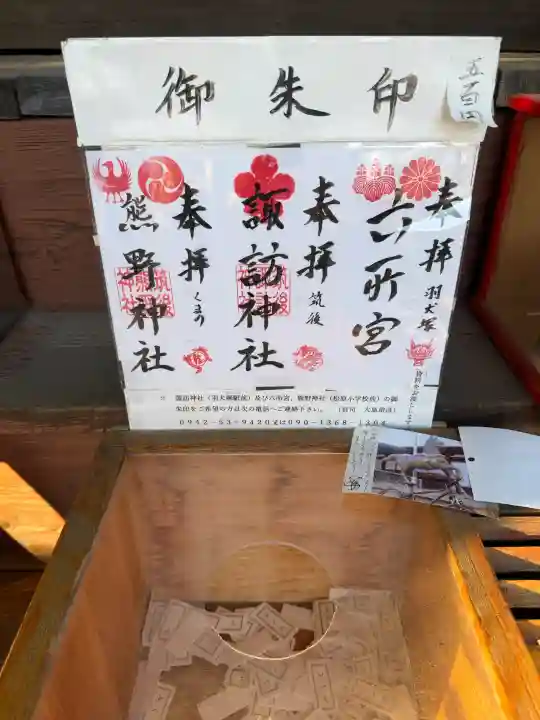 御朱印
五百円
奉拝 羽犬塚
六所宮
奉拝 筑後
諏訪神社
奉拝 くまの
熊野神社
諏訪神社(羽犬塚駅前)及び六所宮、熊野神社(松原小学校後)の御
朱印をご希望の方は次の電話へご連絡下さい。
0942-53-9420又は090-1368-1304